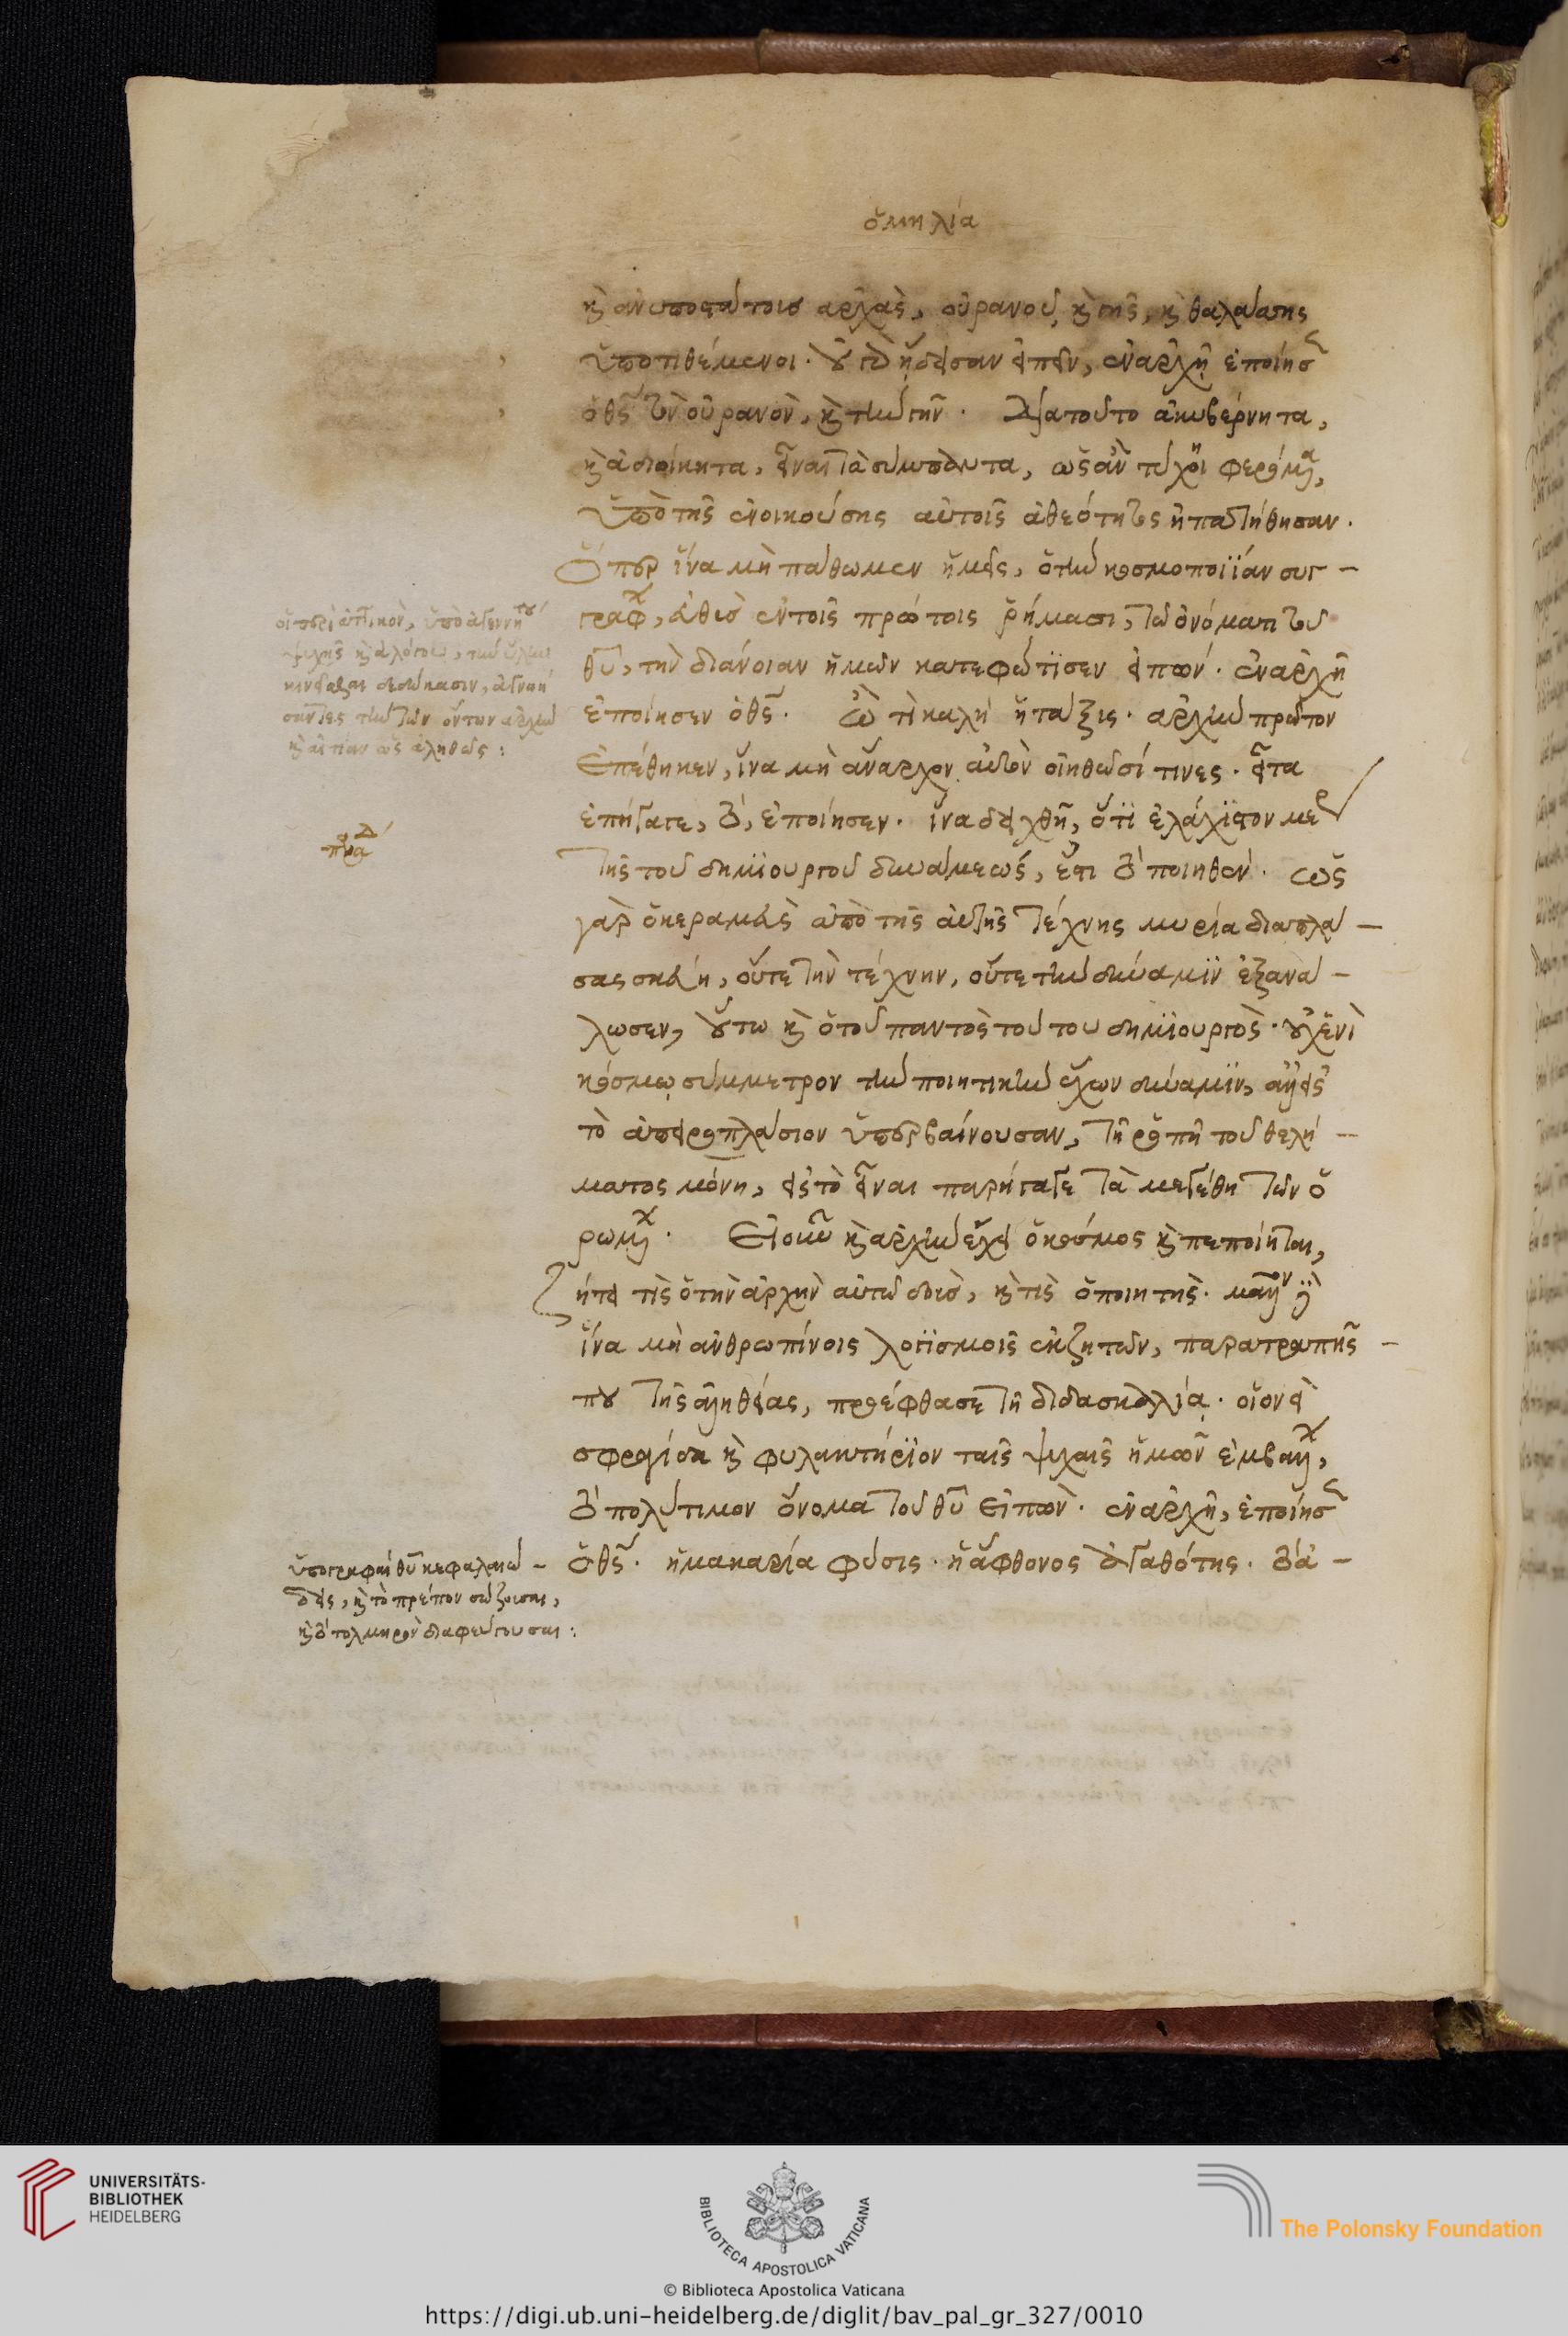 ὁμηλία
καὶ ἀνυποστάτοις ἀρχὰς, οὐρανοῦ καὶ γῆς, καὶ θαλάσσης
ὑποτιθέμενοι· οὐ γὰρ ᾔδεισαν εἰπεῖν, ἐν ἀρχῇ ἐποίησεν
ὁ θς τὸν οὐρανὸν, καὶ τὴν γῆν· διατοῦτο ἀκυβέρνητα,
καὶ ἀδιοίκητα, εἶναι τὰ σύμπαντα, ὡς ἂν τύχῃ φερόμενα,
ὑπὸ τῆς ἐνοικούσης αὐτοῖς ἀθεότητος ἠπατήθησαν.
Ὅπερ ἵνα μὴ πάθωμεν ἡμεῖς, ὁ τὴν κοσμοποιΐαν συγ-
γράφων, εὐθὺς ἐν τοῖς πρώτοις ῥήμασι, τῷ ὀνόματι τοῦ
θυ, τὴν διάνοιαν ἡμῶν κατεφώτισεν εἰπών· ἐν ἀρχῇ
ἐποίησεν ὁ θς. Ὢ τί καλὴ ἡ τάξις· ἀρχὴν πρῶτον
ἐπέθηκεν, ἵνα μὴ ἄναρχον αὐτὸν οἰηθῶσί τινες· εἶτα
ἐπήγαγε, τὸ, ἐποίησεν· ἵνα δειχθῇ, ὅτι ἐλάχιστον μέρος
τῆς τοῦ δημιουργοῦ δυνάμεώς, ἐστι τὸ ποιηθέν· ὡς
γὰρ ὁ κεραμεὺς ἀπὸ τῆς αὐτῆς τέχνης μυρία διαπλά-
σας σκεύη, οὔτε τὴν τέχνην, οὔτε τὴν δύναμιν ἐξανά-
λωσεν, οὕτω καὶ ὁ τοῦ παντὸς τούτου δημιουργὸς· οὐχ ἑνὶ
κόσμῳ σύμμετρον τὴν ποιητικὴν ἔχων δύναμιν, ἀλλ' εἰς
τὸ ἀπειροπλάσιον ὑπερβαίνουσαν, τῇ ῥοπῇ τοῦ θελή-
ματος μόνῃ, εἰς τὸ εἶναι παρήγαγε τὰ μεγέθη τῶν ὁ
ρωμένων. Εἰ οὖν καὶ ἀρχὴν ἔχει ὁ κόσμος καὶ πεποίηται,
ζήτει τίς ὁ τὴν ἀρχὴν αὐτῷ δοὺς, καὶ τίς ὁ ποιητής· μᾶλλον δὲ
ἵνα μὴ ἀνθρωπίνοις λογισμοῖς ἐκζητῶν, παρατραπῇς
που τῆς ἀληθείας, προέφθασε τῇ διδασκαλίᾳ· οἱονεὶ
σφραγίδα καὶ φυλακτήριον ταῖς ψυχαῖς ἡμῶν ἐμβαλὼν,
τὸ πολύτιμον ὄνομα τοῦ θυ εἰπὼν· ἐν ἀρχῇ, ἐποίησεν
ὁ θς· ἡ μακαρία φύσις· ἡ ἄφθονος ἀγαθότης· τὸ ἀ-
ψυχῆς καὶ ἀλόγου, τὴν ὕλην
κινεῖσθαι δεδώκασιν, ἀγνοή
σαντες τὴν τῶν ὄντων ἀρχὴν
καὶ αἰτίαν ὡς ἀληθῶς:
ὑπογραφὴ θυ κεφαλαιώ-
δης, καὶ τὸ πρέπον σώζουσα,
καὶ τὸ τολμηρὸν διαφεύγουσα:
UNIVERSITÄTS-
BIBLIOTHEK
HEIDELBERG
BIBLIOTECA APOSTOLICA VATICANA
The Polonsky Foundation
© Biblioteca Apostolica Vaticana
https://digi.ub.uni-heidelberg.de/diglit/bav_pal_gr_327/0010